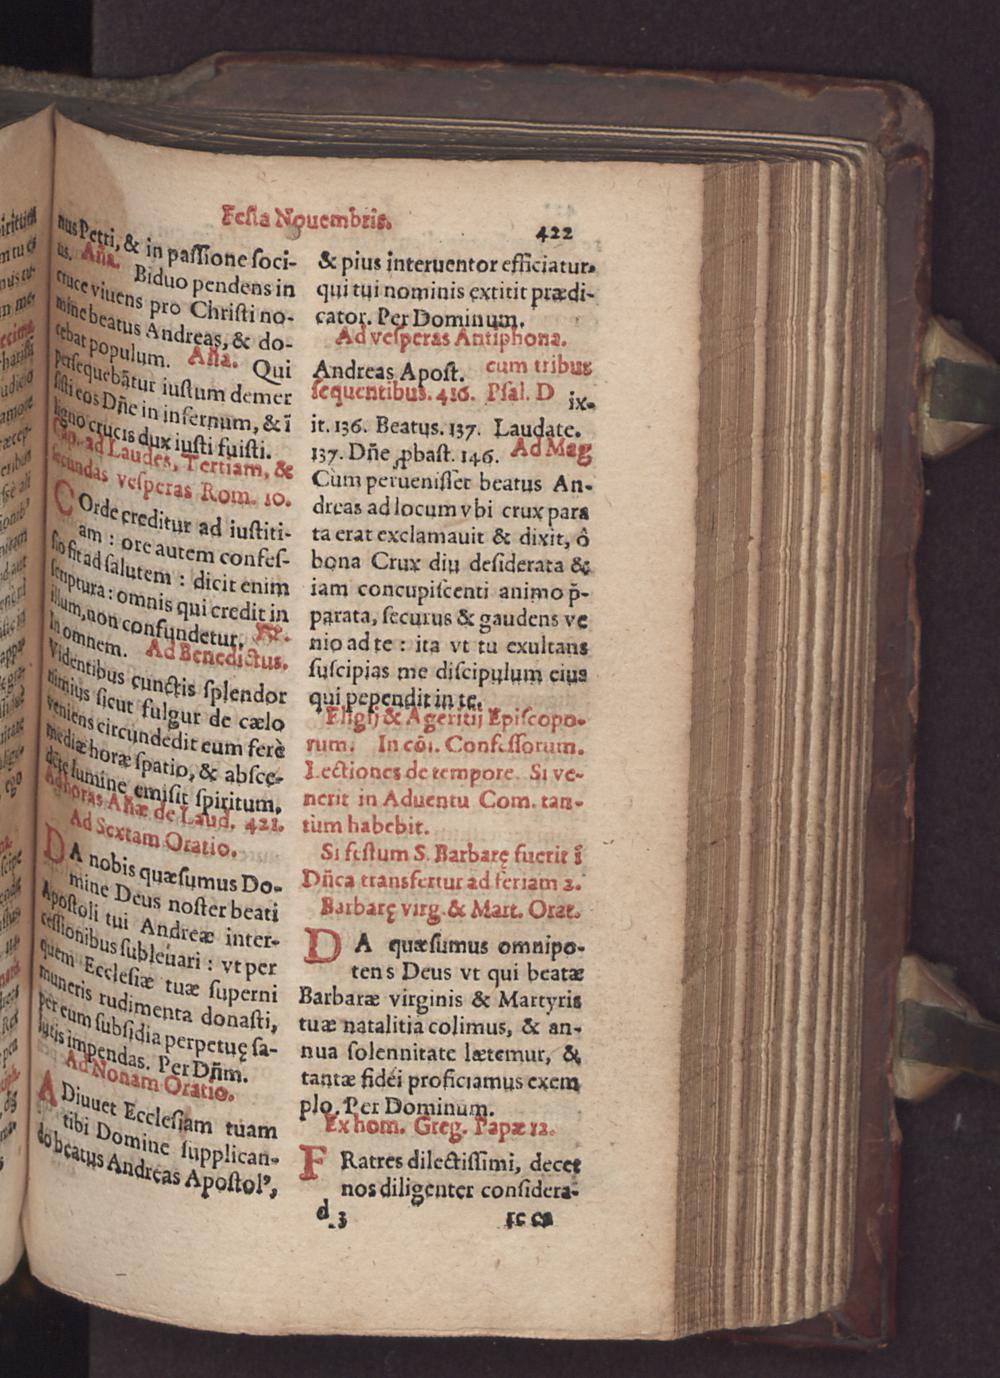 Festa Nouembris.
422
nus Petri, & in paſſione ſoci-
us. Aña. Biduo pendens in
cruce viuens pro Chriſti no-
mine beatus Andreas, & do-
cebat populum. Aña. Qui
perſequebãtur iuſtum demer
ſiſti eos Dñe in infernum, & ĩ
ligno crucis dux iuſti fuiſti.
Cap. ad Laudes, Tertiam, &
ſecundas veſperas Rom. 10.
COrde creditur ad iuſtiti-
am : ore autem confeſ-
ſio fit ad ſalutem : dicit enim
ſcriptura : omnis qui credit in
illum, non confundetur. ℟.
In omnem. Ad Benedictus.
Videntibus cunctis ſplendor
nimius ſicut fulgur de cælo
veniens circundedit eum ferè
mediæ horæ ſpatio, & abſce-
dẽte lumine emiſit ſpiritum.
Ad horas Añæ de Laud. 421.
Ad Sextam Oratio.
DA nobis quæſumus Do-
mine Deus noſter beati
Apoſtoli tui Andreæ inter-
ceſſionibus ſubleuari : vt per
quem Eccleſiæ tuæ ſuperni
muneris rudimenta donaſti,
per eum ſubſidia perpetuę ſa-
lutis impendas. Per Dñm.
Ad Nonam Oratio.
ADiuuet Eccleſiam tuam
tibi Domine ſupplican-
do beatus Andreas Apoſtolꝰ,
& pius interuentor efficiatur.
qui tui nominis extitit prædi-
cator. Per Dominum.
Ad veſperas Antiphona.
Andreas Apoſt. cum tribus
ſequentibus. 416. Pſal. D ix-
it. 136. Beatus. 137. Laudate.
137. Dñe ꝓbaſt. 146. Ad Mag
Cùm perueniſſet beatus An-
dreas ad locum vbi crux para
ta erat exclamauit & dixit, ô
bona Crux diu deſiderata &
iam concupiſcenti animo p̄-
parata, ſecurus & gaudens ve
nio ad te : ita vt tu exultans
ſuſcipias me diſcipulum eius
qui pependit in te.
Eligij & Ageritij Epiſcopo-
rum. In cõi. Confeſſorum.
Lectiones de tempore. Si ve-
nerit in Aduentu Com. tan-
tùm habebit.
Si feſtum S. Barbarę fuerit ĩ
Dñca transfertur ad feriam 2.
Barbarę virg. & Mart. Orat.
DA quæſumus omnipo-
tens Deus vt qui beatæ
Barbaræ virginis & Martyris
tuæ natalitia colimus, & an-
nua ſolennitate lætemur, &
tantæ fidéi proficiamus exem
plo. Per Dominum.
Ex hom. Greg. Papæ 12.
FRatres dilectiſſimi, decet
nos diligenter conſidera-
d 3